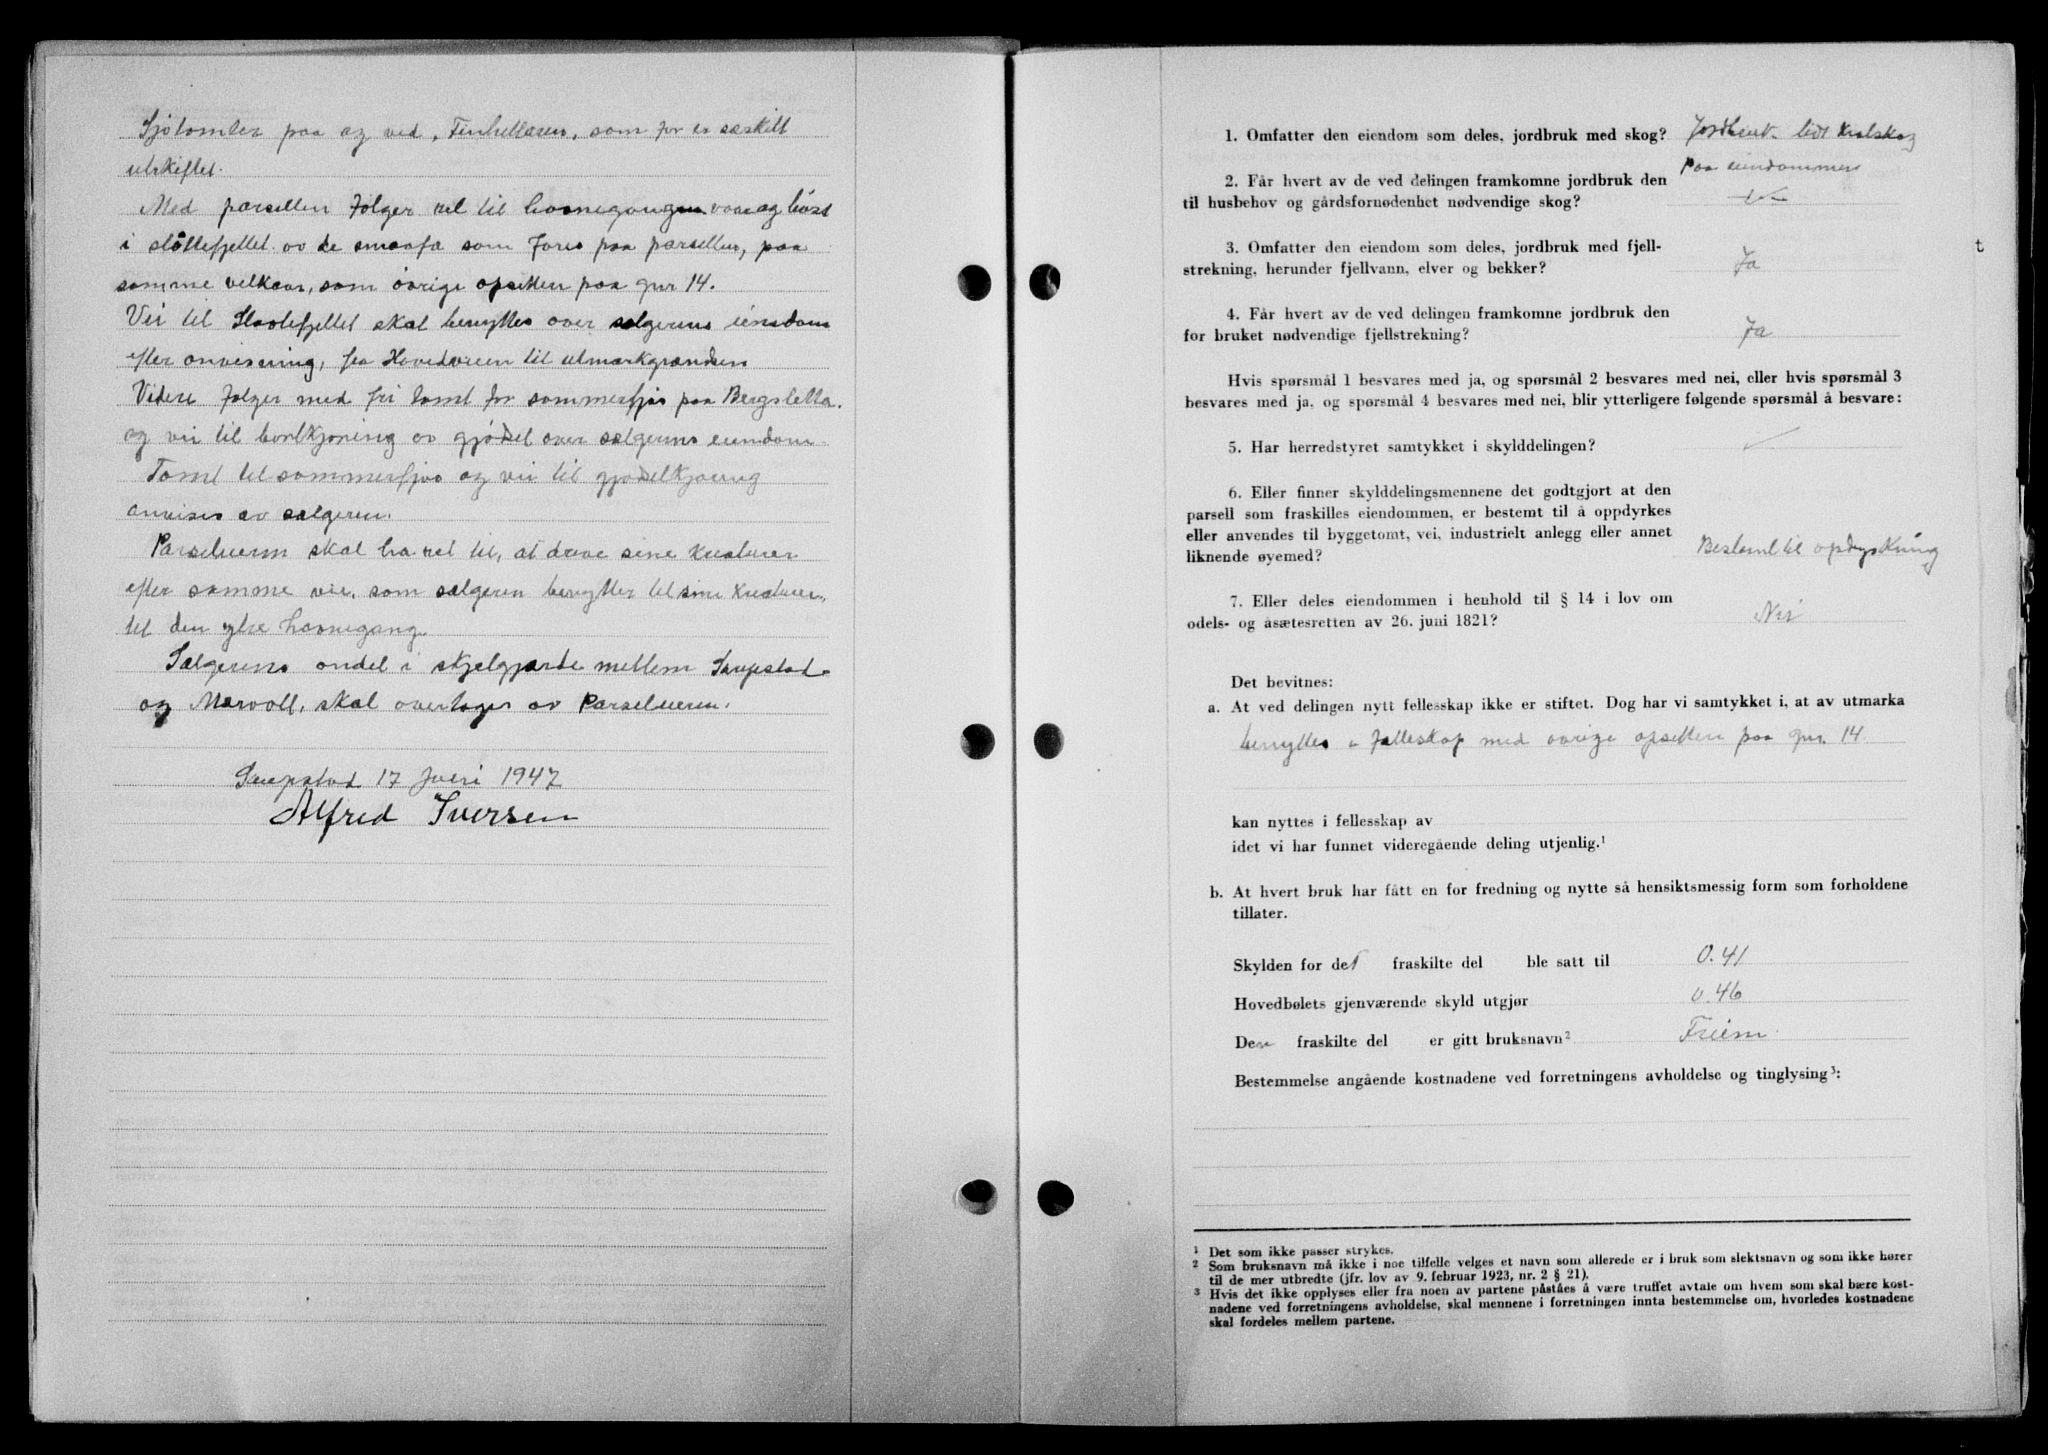 Sjøtomter paa og ved, Finhellaren, som før er særskilt
utskiftet.
Med parsellen følger ret til havnegangen vaar og høst
i slåttefjellet av de smaafæ som fores paa parsellen, paa
samme velkaar, som øvrige opsittere paa gnr 14.
Vei til Slaatefjellet skal benyttes over sælgerens eiendom
efter anvisning, fra Hovedveien til utmarkgrænden
Videre følger med fri tomt for sommerfjøs paa Bergsletta.
og vei til bortkjøring av gjødsel over sælgerens eiendom
Tomt til sommerfjøs og vei til gjødselkjøring
anvises av sælgeren.
Parseleieren skal ha ret til, at drive sine kreaturer
efter samme vei, som sælgeren benytter til sine kreaturer,
til den ytre havnegang.
Sælgerens andel i skjelgjærde mellem Saupstad
og Marvoll, skal overtages av Parseleieren.
Saupstad 17 Juni 1947
Alfred Iversen
1. Omfatter den eiendom som deles, jordbruk med skog? Jordbruk. lidt kratskog
paa eiendommen
2. Får hvert av de ved delingen framkomne jordbruk den
til husbehov og gårdsfornødenhet nødvendige skog?
3. Omfatter den eiendom som deles, jordbruk med fjell-
strekning, herunder fjellvann, elver og bekker? Ja
4. Får hvert av de ved delingen framkomne jordbruk den
for bruket nødvendige fjellstrekning? Ja
Hvis spørsmål 1 besvares med ja, og spørsmål 2 besvares med nei, eller hvis spørsmål 3
besvares med ja, og spørsmål 4 besvares med nei, blir ytterligere følgende spørsmål å besvare:
5. Har herredstyret samtykket i skylddelingen?
6. Eller finner skylddelingsmennene det godtgjort at den
parsell som fraskilles eiendommen, er bestemt til å oppdyrkes
eller anvendes til byggetomt, vei, industrielt anlegg eller annet
liknende øyemed? Bestemt til opdyrkning
7. Eller deles eiendommen i henhold til § 14 i lov om
odels- og åsætesretten av 26. juni 1821? Nei
Det bevitnes:
a. At ved delingen nytt fellesskap ikke er stiftet. Dog har vi samtykket i, at av utmarka
benyttes i fælleskap med øvrige opsittere paa gnr. 14
kan nyttes i fellesskap av
idet vi har funnet videregående deling utjenlig.¹
b. At hvert bruk har fått en for fredning og nytte så hensiktsmessig form som forholdene
tillater.
Skylden for de fraskilte del ble satt til 0.41
Hovedbølets gjenværende skyld utgjør 0.46
Den fraskilte del er gitt bruksnavn² Friem
Bestemmelse angående kostnadene ved forretningens avholdelse og tinglysing³:
¹ Det som ikke passer strykes.
² Som bruksnavn må ikke i noe tilfelle velges et navn som allerede er i bruk som slektsnavn og som ikke hører
til de mer utbredte (jfr. lov av 9. februar 1923, nr. 2 § 21).
³ Hvis det ikke opplyses eller fra noen av partene påståes å være truffet avtale om hvem som skal bære kost-
nadene ved forretningens avholdelse, skal mennene i forretningen innta bestemmelse om, hvorledes kostnadene
skal fordeles mellem partene.